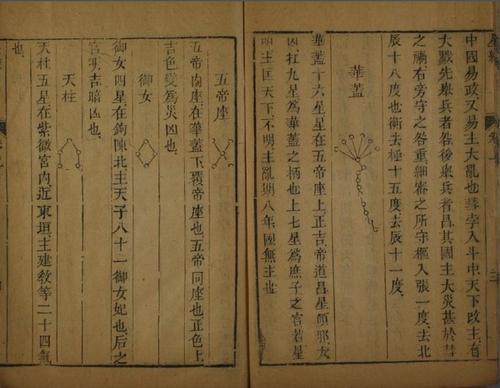 中國易政又易主大亂也彗孛入斗中天下改主有
大戮先舉兵者咎後舉兵者昌其國主大災甚於彗
之禍右旁守之咎重細審之所守樞入張一度去北
辰十八度也衡去極十五度去辰十一度
華蓋
華蓋十六星星在五帝座上正吉帝道昌星傾邪大
凶杠九星爲華蓋之柄也上七星爲庶子之官若星
明主匡天下不明主亂期八年國無主也
五帝座
五帝内座在華蓋下覆帝座也五帝同座也正色上
吉色變爲災凶也
御女
御女四星在鉤陳北主天子八十一御女妃也后之
官明吉暗凶也
天柱
天柱五星在紫微宮内近東垣主建教等二十四氣
也